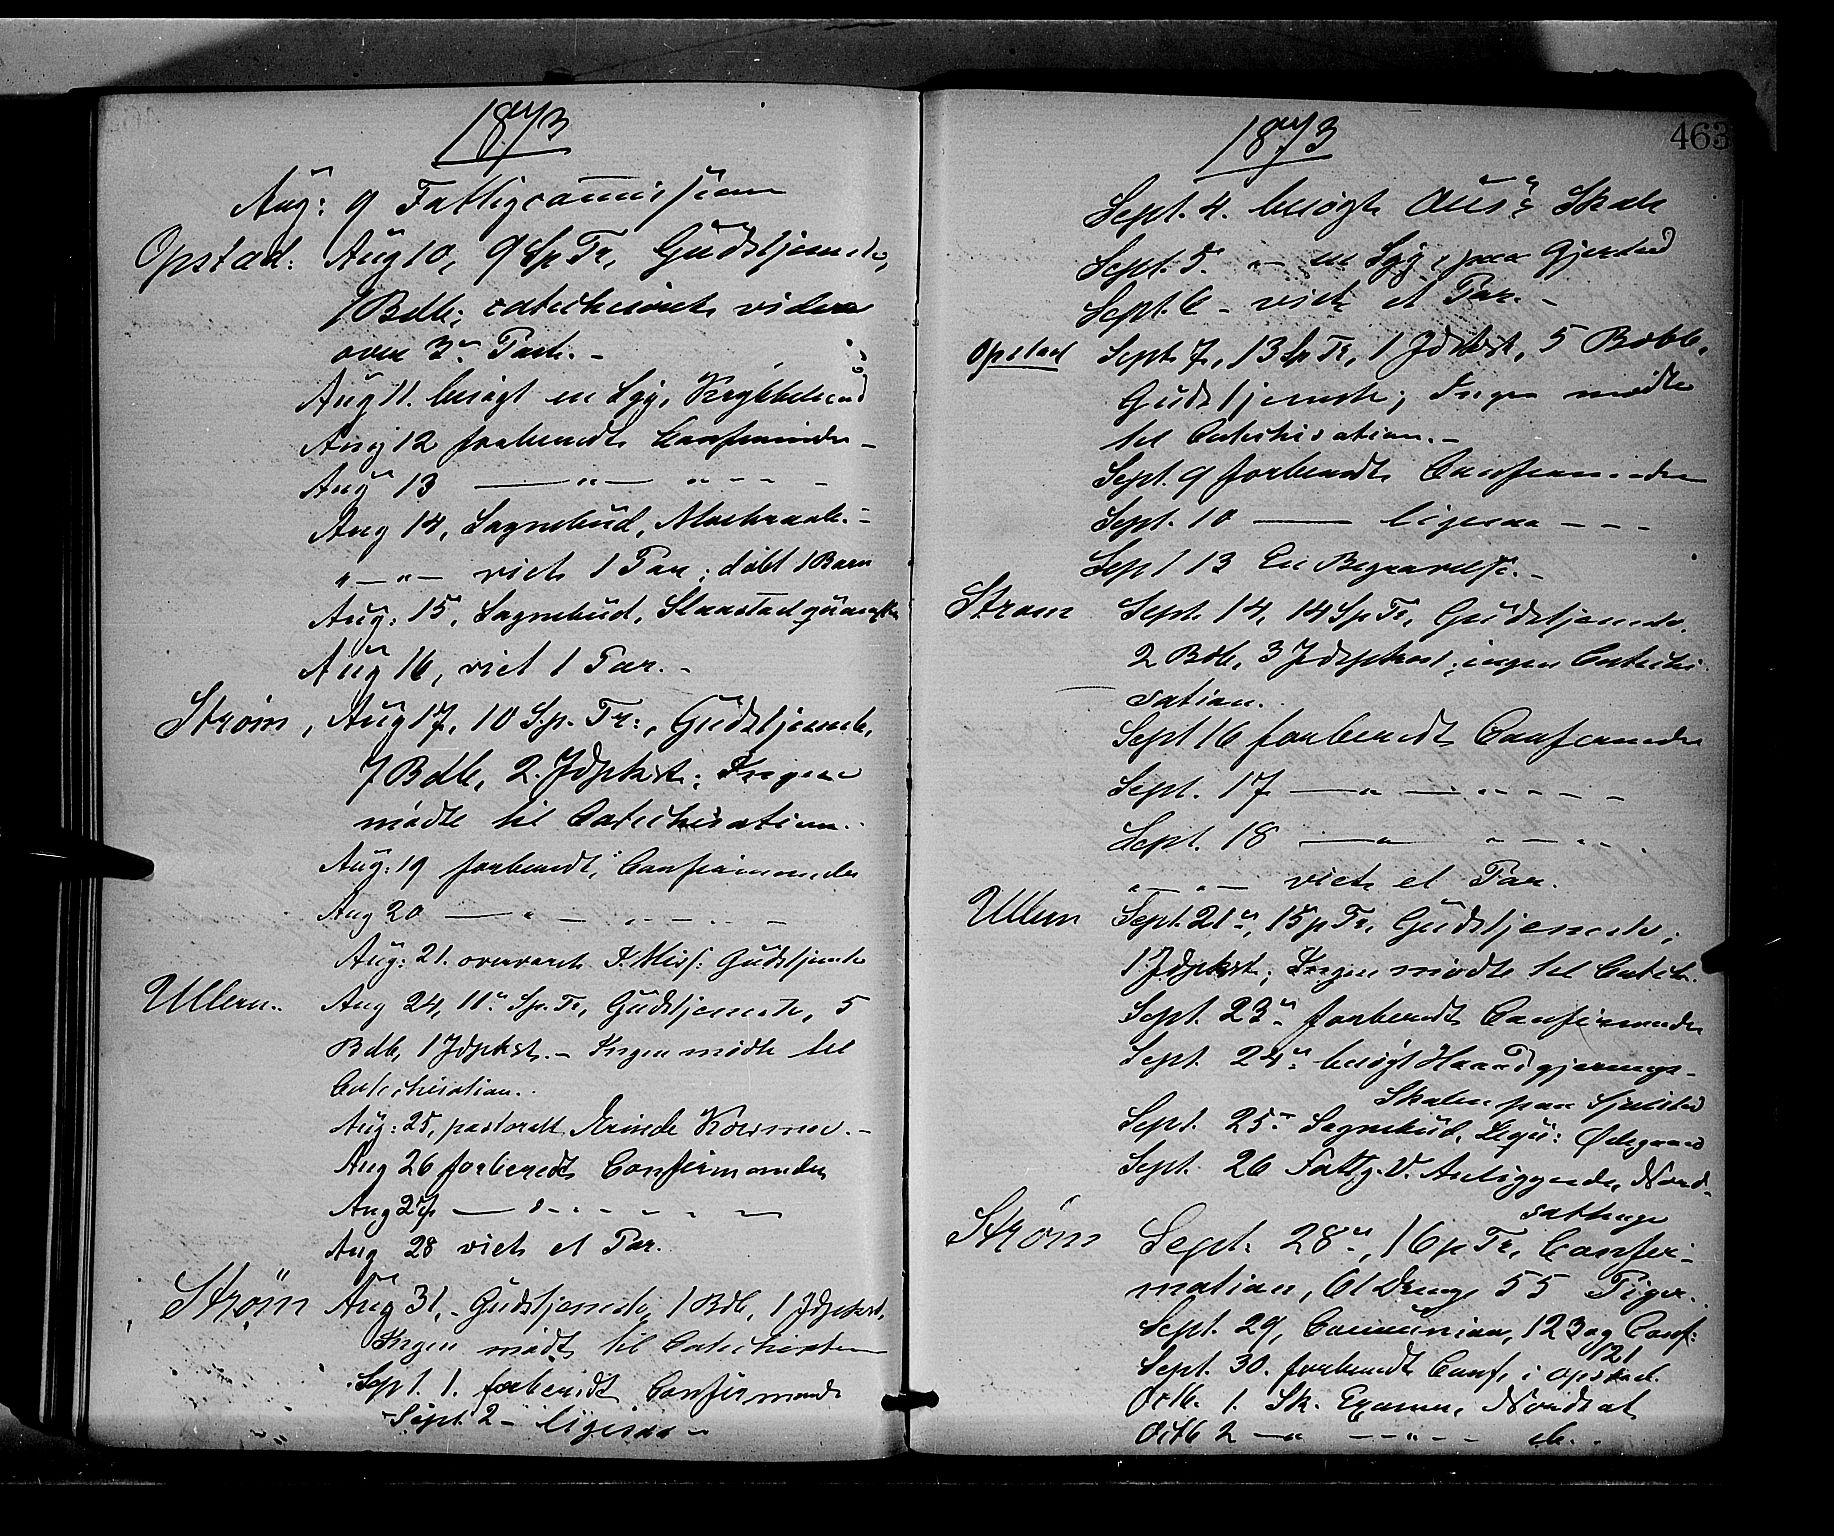 1873
Aug: 9 Fattigcommission
Opstad: Aug 10, 9 Sp Tr, Gudstjeneste,
7 Bdb; catechiserets videre
over 3die Part. -
Aug 11. besøgt en Syg,
Aug 12 forberedt Confirmander -
Aug 13 — " — " - - -
Aug 14, Sognebud,
" — " — viet 1 Par; døbt 1 Barn
Aug: 15, Sognebud,
Aug 16, viet 1 Par. -
Strøm, Aug 17, 10 S.p. Tr:, Gudstjeneste,
7 Bdb, 2. Jdpkst; Ingen
mødte til Catechisation.
Aug: 19 forberedt Confirmander
Aug 20 — " — " - - -
Aug: 21. overværet Miss: Gudstjeneste
Ullern. Aug 24, 11te Sp. Tr, Gudstjeneste, 5
Bdb, 1 Jdpkst. - Ingen mødte til
Catechisation.
Aug: 25, pastoralt Ærinde
Aug 26 forberedt Confirmander
Aug 27 — " - - - - —
Aug 28 viet et Par.
Strøm Aug 31, Gudstjeneste, 1 Bdb, 1 Jdpkst,
Ingen mødt til Catechisation
Sept. 1. forberedt Confirmander
Sept. 2 - ligesaa -
1873
463
Sept. 4. besøgt Skole
Sept. 5. - " - en Syg, paa Gjerstad
Sept. 6 - viet et Par. -
Opstad Sept. 7, 13 Sp Tr, 1 Jdpkst, 5 Bdb,
Gudstjeneste; Ingen mødte
til Catechisation. -
Sept. 9 forberedt Confirmander
Sept. 10 — ligesaa - - -
Sept 13 En Begravelse. -
Strøm Sept. 14, 14 Sp Tr, Gudstjeneste,
2 Bdb, 3 Jdpkst; ingen Catechi-
sation.
Sept 16 forberedt Confirmander
Sept. 17 — " — " - - - -
Sept. 18 — " — " - - -
" - " — viet et Par.
Ullern Sept. 21de, 15 p Tr, Gudstjeneste;
1 Jdpkst; Ingen mødte til Catech.
Sept. 23de forberedt Confirmander
Sept. 24de besøgt Haandgjernings-
Skolen paa
Sept. 25de Sognebud, Ødegaard
Sept. 26 Fattigv. Anliggende, Nord-
Strøm Sept. 28de, 16 p Tr, Confir-
mation, 61 Drenge 55 Piger.
Sept. 29, Communion, 123 og Conf:
121
Sept. 30. forberedt Conf. i Opstad.
Octb. 1. Sk. Examen, Nordsat
Octb 2 — " — - " - - do.